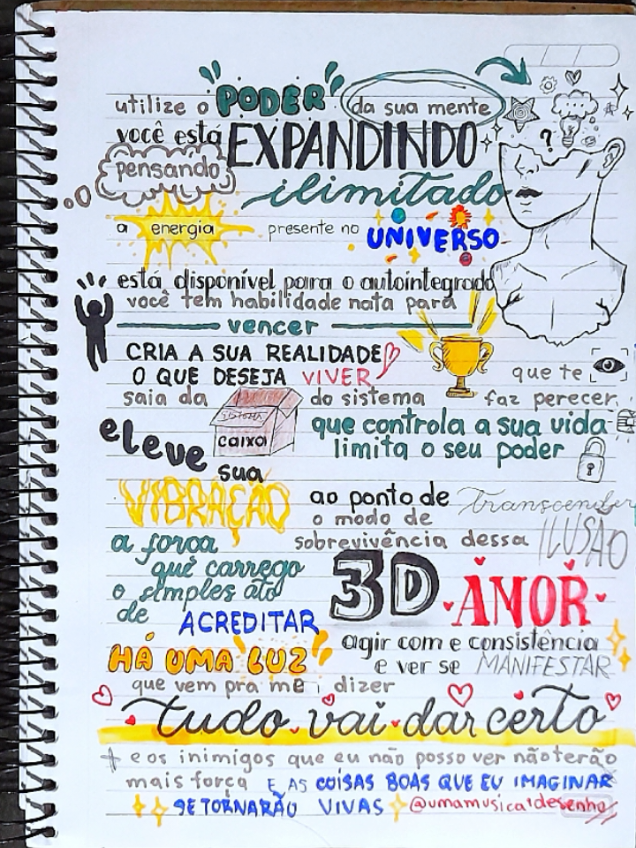 utilize o PODER da sua mente
você está EXPANDINDO
pensando ilimitado
a energia presente no UNIVERSO
está disponível para o autointegrado
você tem habilidade nata para
vencer
CRIA A SUA REALIDADE
O QUE DESEJA VIVER que te
saia da caixa do sistema faz perecer
que controla a sua vida
eleve limita o seu poder
sua
VIBRAÇÃO ao ponto de Transcender
o modo de
sobrevivência dessa ILUSÃO
3D AMOR
a força
que carrego
o simples ato
de ACREDITAR
agir com e consistência
HÁ UMA LUZ e ver se MANIFESTAR
que vem pra me dizer
tudo vai dar certo
+ e os inimigos que eu não posso ver não terão
mais força E AS COISAS BOAS QUE EU IMAGINAR
SE TORNARÃO VIVAS @umamusica1desenho